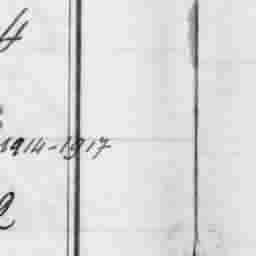 4
1914-1917
2